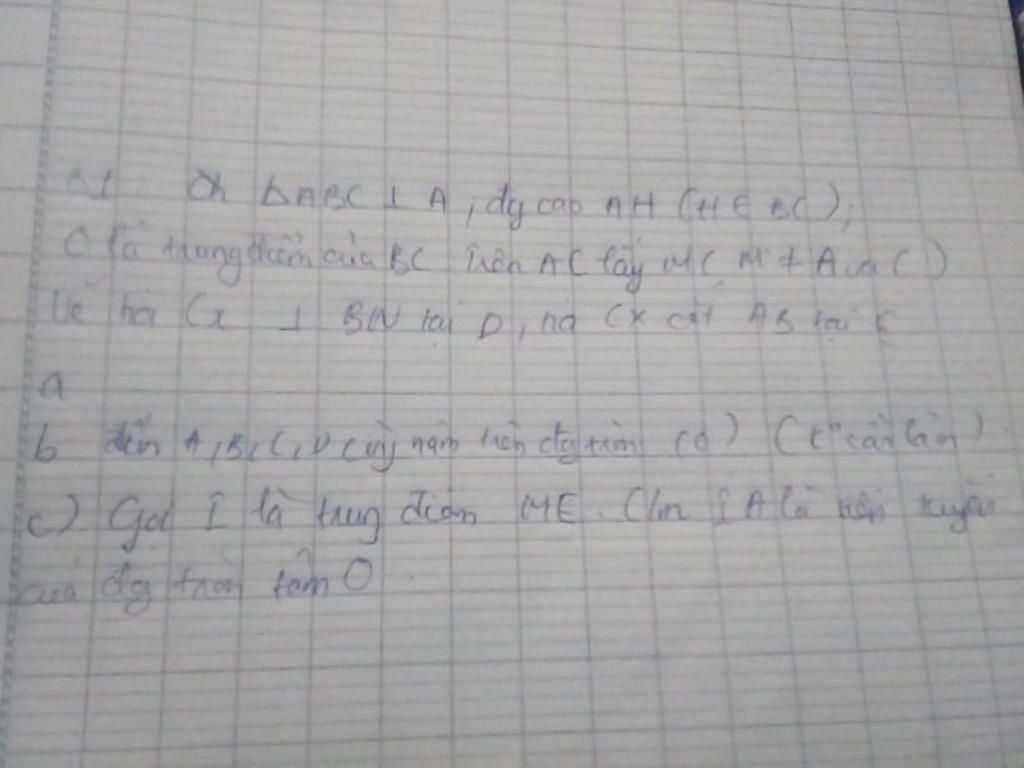 Ch △ABC ⊥ A, đg cao AH (H ∈ BC);
O là trung điểm của BC trên AC lấy M( M ≠ A và C)
Vẽ Cx ⊥ BM tại D, Cx cắt AB tại E
a
b A, B, C, D cùng nằm trên đg tròn (O) (cần làm)
c) Gọi I là trung điểm ME. Cm IA là tiếp tuyến
của đg tròn tâm O.